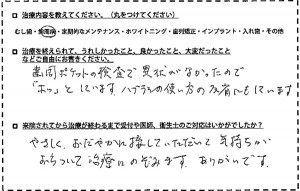 □ 治療内容を教えてください。（丸をつけてください）
むし歯・歯周病・定期的なメンテナンス・ホワイトニング・歯列矯正・インプラント・入れ歯・その他
□ 治療を終えられて、うれしかったこと、良かったこと、大変だったこと
などご自由にお書きください。
歯周ポケットの検査で異状がなかったので
「ホッ」としています。ハブラシの使い方の反省にもています
□ 来院されてから治療が終わるまで受付や医師、衛生士のご対応はいかがでしたか？
やさしく、おだやかに接していただいて 気持ちが
おちついて治療にのぞめます。ありがたいです。